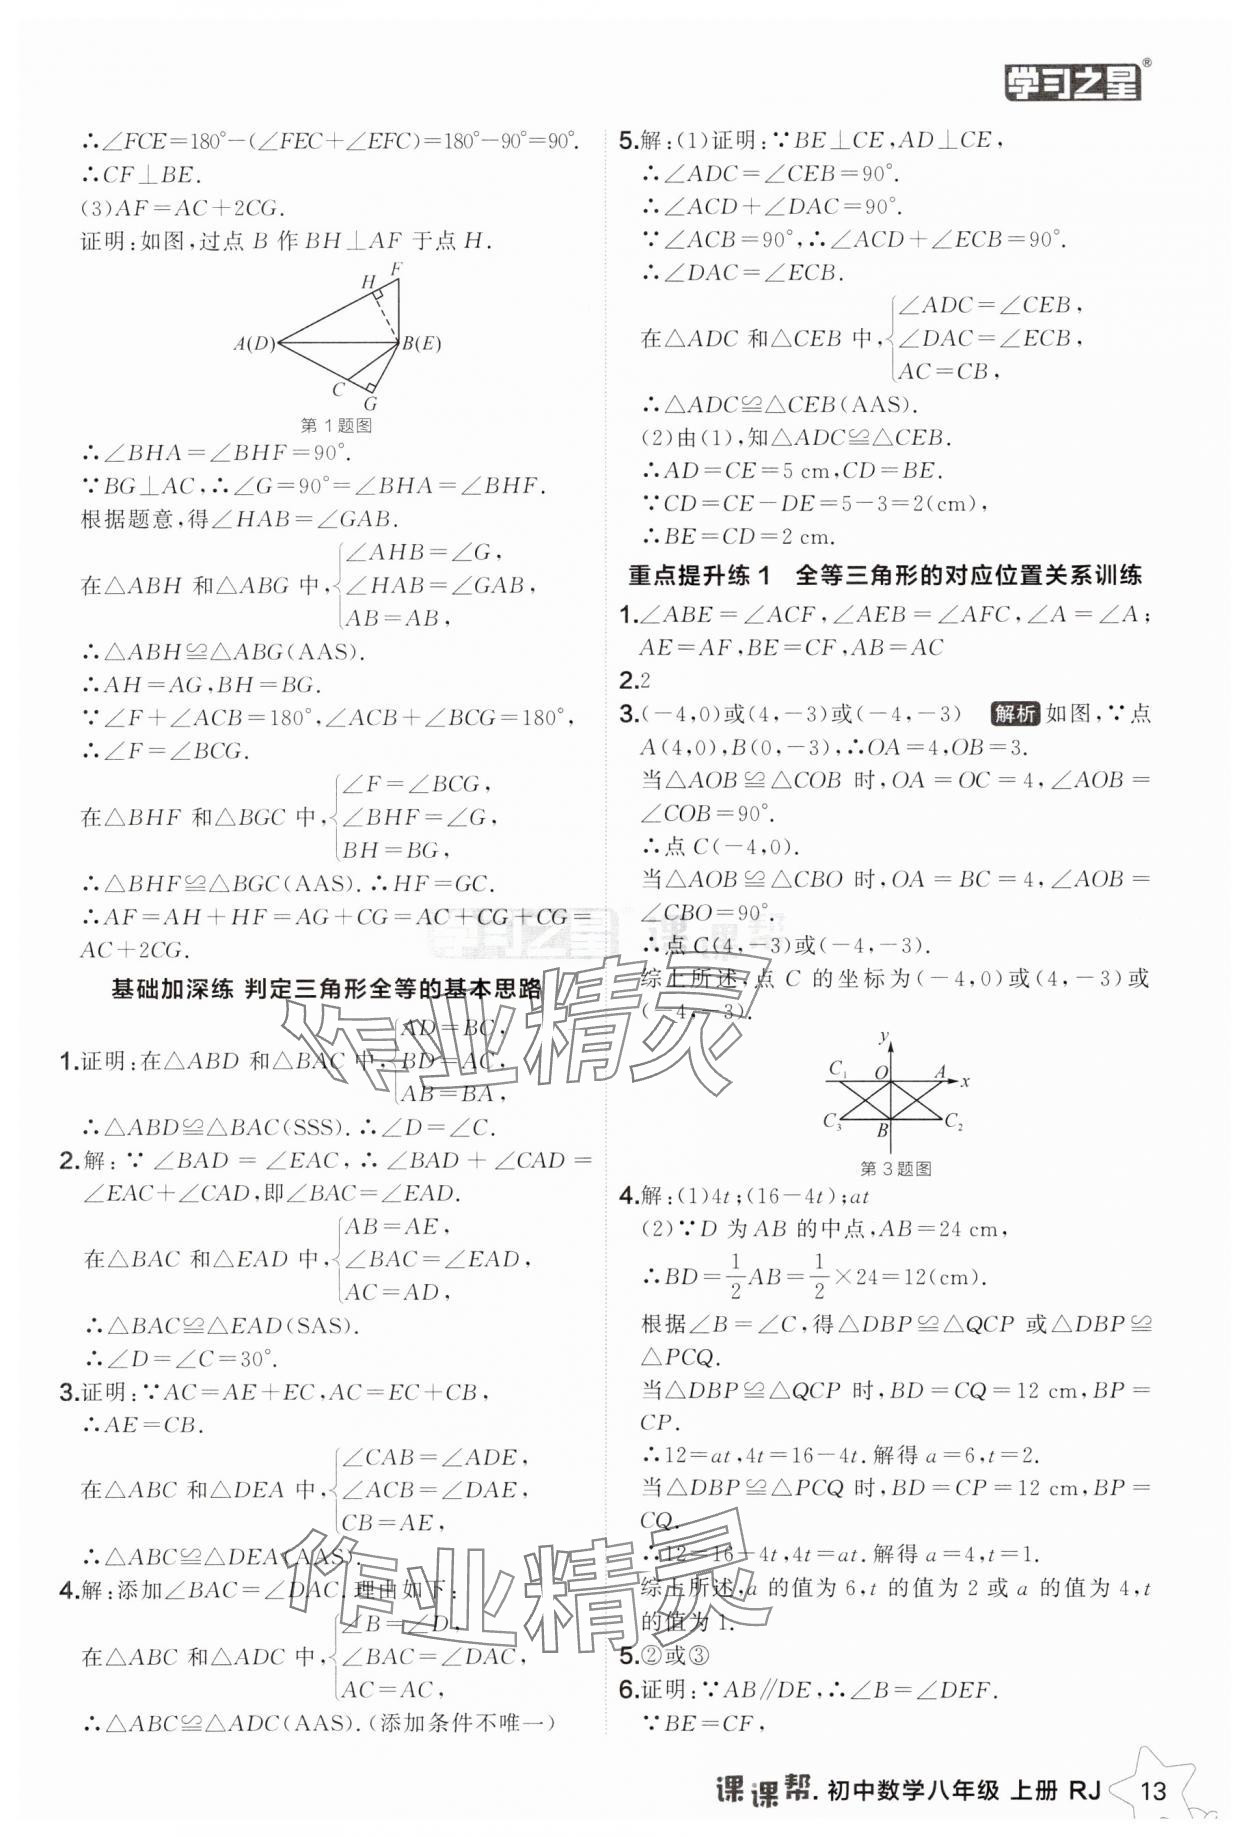 学习之星®
∴∠FCE=180°-(∠FEC+∠EFC)=180°-90°=90°.
∴CF⊥BE.
(3)AF=AC+2CG.
证明:如图,过点B作BH⊥AF于点H.
F
H
A(D)
B(E)
C
G
第1题图
∴∠BHA=∠BHF=90°.
∵BG⊥AC,∴∠G=90°=∠BHA=∠BHF.
根据题意,得∠HAB=∠GAB.
∠AHB=∠G,
在△ABH和△ABG中,{∠HAB=∠GAB,
AB=AB,
∴△ABH≌△ABG(AAS).
∴AH=AG,BH=BG.
∵∠F+∠ACB=180°,∠ACB+∠BCG=180°,
∴∠F=∠BCG.
∠F=∠BCG,
在△BHF和△BGC中,{∠BHF=∠G,
BH=BG,
∴△BHF≌△BGC(AAS).∴HF=GC.
∴AF=AH+HF=AG+CG=AC+CG+CG=
AC+2CG.
基础加深练 判定三角形全等的基本思路
AD=BC,
1.证明:在△ABD和△BAC中,{BD=AC,
AB=BA,
∴△ABD≌△BAC(SSS).∴∠D=∠C.
2.解:∵∠BAD=∠EAC,∴∠BAD+∠CAD=
∠EAC+∠CAD,即∠BAC=∠EAD.
AB=AE,
在△BAC和△EAD中,{∠BAC=∠EAD,
AC=AD,
∴△BAC≌△EAD(SAS).
∴∠D=∠C=30°.
3.证明:∵AC=AE+EC,AC=EC+CB,
∴AE=CB.
∠CAB=∠ADE,
在△ABC和△DEA中,{∠ACB=∠DAE,
CB=AE,
∴△ABC≌△DEA(AAS).
4.解:添加∠BAC=∠DAC.理由如下:
∠B=∠D,
在△ABC和△ADC中,{∠BAC=∠DAC,
AC=AC,
∴△ABC≌△ADC(AAS).(添加条件不唯一)
5.解:(1)证明:∵BE⊥CE,AD⊥CE,
∴∠ADC=∠CEB=90°.
∴∠ACD+∠DAC=90°.
∵∠ACB=90°,∴∠ACD+∠ECB=90°.
∴∠DAC=∠ECB.
∠ADC=∠CEB,
在△ADC和△CEB中,{∠DAC=∠ECB,
AC=CB,
∴△ADC≌△CEB(AAS).
(2)由(1),知△ADC≌△CEB.
∴AD=CE=5 cm,CD=BE.
∵CD=CE-DE=5-3=2(cm),
∴BE=CD=2 cm.
重点提升练1 全等三角形的对应位置关系训练
1.∠ABE=∠ACF,∠AEB=∠AFC,∠A=∠A;
AE=AF,BE=CF,AB=AC
2.2
3.(-4,0)或(4,-3)或(-4,-3) 解析 如图,∵点
A(4,0),B(0,-3),∴OA=4,OB=3.
当△AOB≌△COB时,OA=OC=4,∠AOB=
∠COB=90°.
∴点C(-4,0).
当△AOB≌△CBO时,OA=BC=4,∠AOB=
∠CBO=90°.
∴点C(4,-3)或(-4,-3).
综上所述,点C的坐标为(-4,0)或(4,-3)或
(-4,-3).
y
C₁ O A x
C₃ B C₂
第3题图
4.解:(1)4t;(16-4t);at
(2)∵D为AB的中点,AB=24 cm,
∴BD=1/2AB=1/2×24=12(cm).
根据∠B=∠C,得△DBP≌△QCP或△DBP≌
△PCQ.
当△DBP≌△QCP时,BD=CQ=12 cm,BP=
CP.
∴12=at,4t=16-4t.解得a=6,t=2.
当△DBP≌△PCQ时,BD=CP=12 cm,BP=
CQ.
∴12=16-4t,4t=at.解得a=4,t=1.
综上所述,a的值为6,t的值为2或a的值为4,t
的值为1.
5.②或③
6.证明:∵AB∥DE,∴∠B=∠DEF.
∵BE=CF,
学习之星 课课帮
作业精灵
作业精灵
课课帮.初中数学八年级 上册 RJ 13